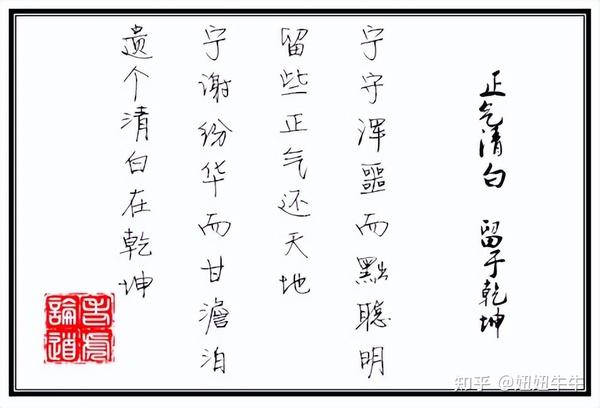 正气清白 留于乾坤
宁守浑噩而黜聰明
留些正气还天地
宁谢纷华而甘澹泊
遗个清白在乾坤
論道
知乎 @妞妞牛牛